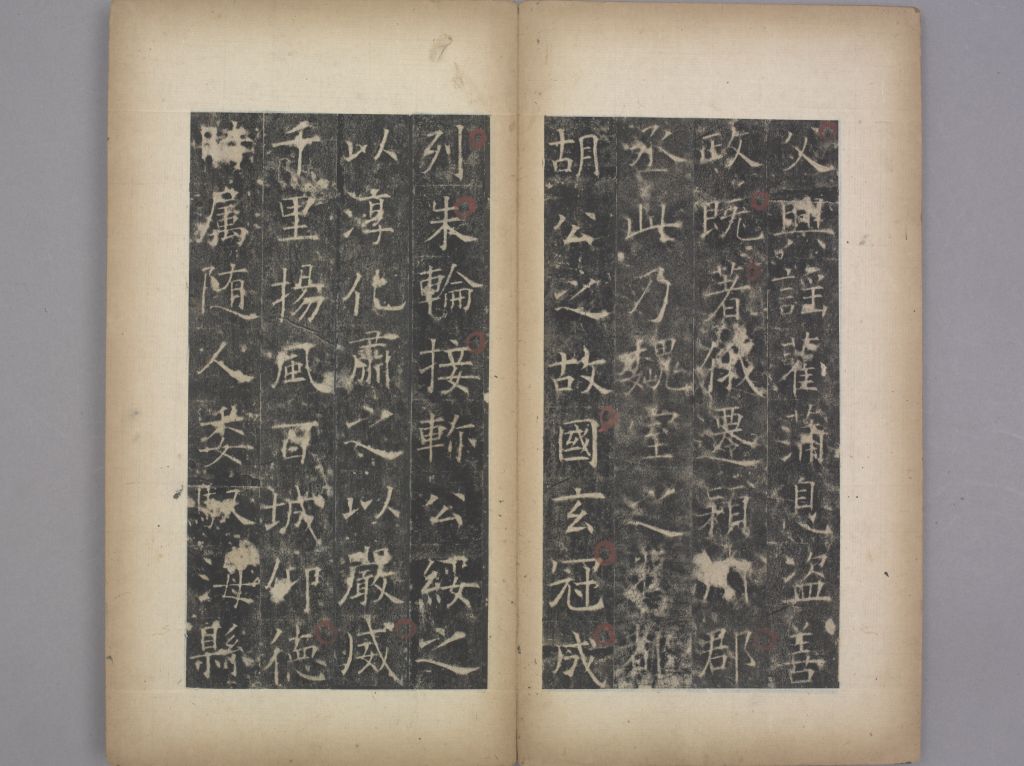 父興謡雈蒲息盗善
政既著俄遷潁川郡
丞此乃魏室之舊都
胡公之故國玄冠成
列朱輪接軫公綏之
以淳化肅之以嚴威
千里揚風百城仰德
時属随人委馭海縣